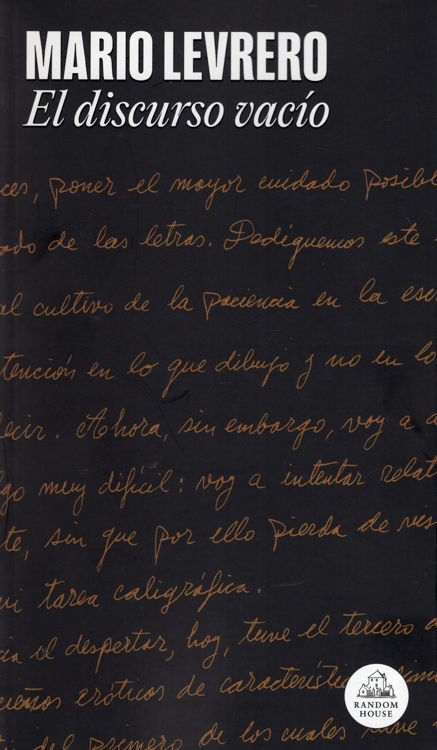 MARIO LEVRERO
El discurso vacío
ces, poner el mayor cuidado posibl
ado de las letras. Dediquemos este
al cultivo de la paciencia en la esc
tención en lo que dibujo y no en lo
decir. Ahora, sin embargo, voy a
lgo muy difícil: voy a intentar relat
te, sin que por ello pierda de
mi tarea caligráfica.
cia el despertar, hoy, tuve el tercero
ueños eróticos de
del primero de los cuales tuve
RANDOM
HOUSE